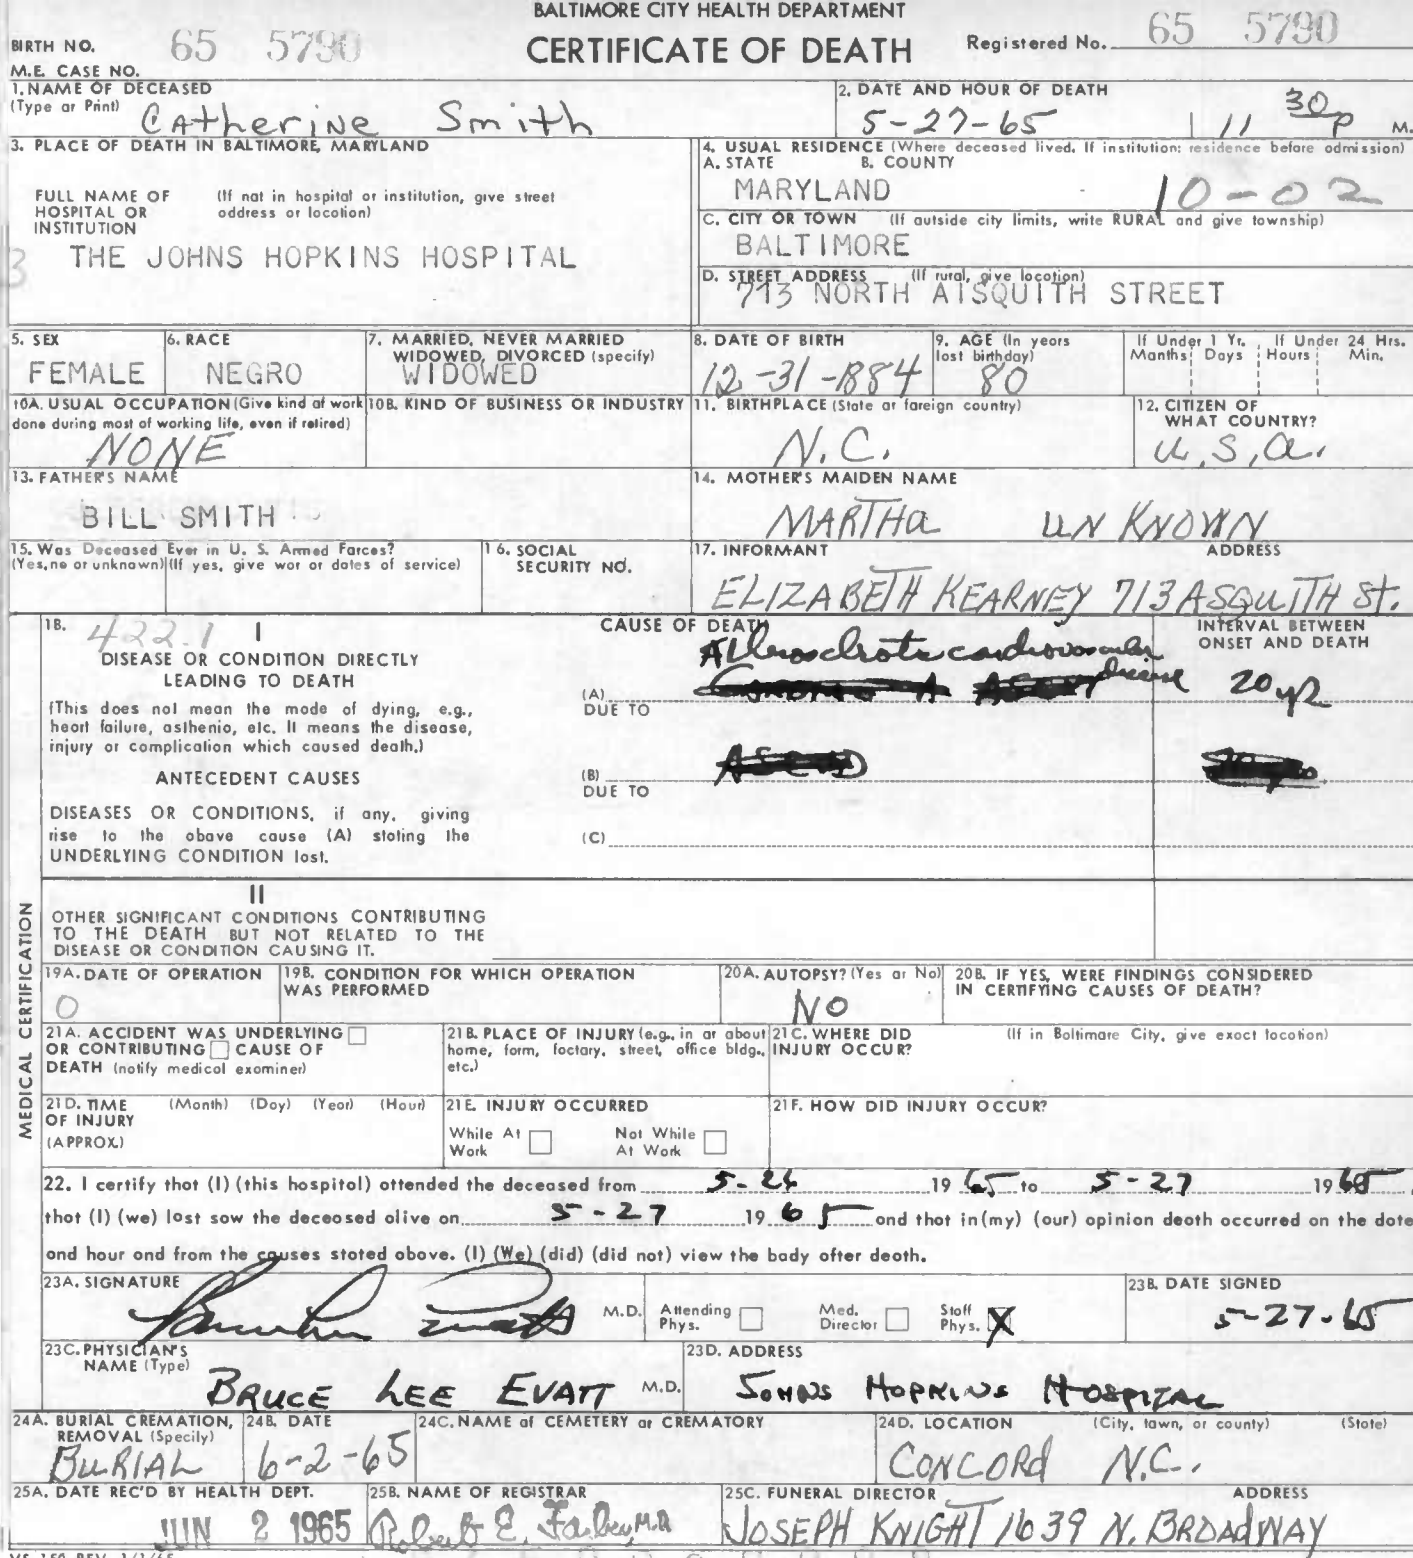 BALTIMORE CITY HEALTH DEPARTMENT
BIRTH NO. 65 5790 CERTIFICATE OF DEATH Registered No. 65 5790
M.E. CASE NO.
1. NAME OF DECEASED
(Type or Print) Catherine Smith
2. DATE AND HOUR OF DEATH
5-27-65 11 30 P M.
3. PLACE OF DEATH IN BALTIMORE, MARYLAND
FULL NAME OF HOSPITAL OR INSTITUTION (If not in hospital or institution, give street address or location)
THE JOHNS HOPKINS HOSPITAL
3
4. USUAL RESIDENCE (Where deceased lived. If institution: residence before admission)
A. STATE B. COUNTY
MARYLAND 10-02
C. CITY OR TOWN (If outside city limits, write RURAL and give township)
BALTIMORE
D. STREET ADDRESS (If rural, give location)
713 NORTH AISQUITH STREET
5. SEX
FEMALE
6. RACE
NEGRO
7. MARRIED, NEVER MARRIED
WIDOWED, DIVORCED (specify)
WIDOWED
8. DATE OF BIRTH
12-31-1884
9. AGE (In years
last birthday)
80
If Under 1 Yr. If Under 24 Hrs.
Months Days Hours Min.
10A. USUAL OCCUPATION (Give kind of work
done during most of working life, even if retired)
NONE
10B. KIND OF BUSINESS OR INDUSTRY
11. BIRTHPLACE (State or foreign country)
N.C.
12. CITIZEN OF
WHAT COUNTRY?
U.S.A.
13. FATHER'S NAME
BILL SMITH
14. MOTHER'S MAIDEN NAME
MARTHA UNKNOWN
15. Was Deceased Ever in U. S. Armed Forces?
(Yes, no or unknown) (If yes, give war or dates of service)
16. SOCIAL
SECURITY NO.
17. INFORMANT ADDRESS
ELIZABETH KEARNEY 713 ASQUITH St.
MEDICAL CERTIFICATION
18. 422.1 I
DISEASE OR CONDITION DIRECTLY
LEADING TO DEATH
(This does not mean the mode of dying, e.g.,
heart failure, asthenia, etc. It means the disease,
injury or complication which caused death.)
ANTECEDENT CAUSES
DISEASES OR CONDITIONS, if any, giving
rise to the above cause (A) stating the
UNDERLYING CONDITION last.
CAUSE OF DEATH
Atherosclerotic cardiovascular
disease
(A)
DUE TO
(B)
DUE TO
(C)
INTERVAL BETWEEN
ONSET AND DEATH
20 yr
II
OTHER SIGNIFICANT CONDITIONS CONTRIBUTING
TO THE DEATH BUT NOT RELATED TO THE
DISEASE OR CONDITION CAUSING IT.
19A. DATE OF OPERATION
0
19B. CONDITION FOR WHICH OPERATION
WAS PERFORMED
20A. AUTOPSY? (Yes or No)
NO
20B. IF YES, WERE FINDINGS CONSIDERED
IN CERTIFYING CAUSES OF DEATH?
21A. ACCIDENT WAS UNDERLYING
OR CONTRIBUTING CAUSE OF
DEATH (notify medical examiner)
21B. PLACE OF INJURY (e.g., in or about
home, farm, factory, street, office bldg.,
etc.)
21C. WHERE DID (If in Baltimore City, give exact location)
INJURY OCCUR?
21D. TIME (Month) (Day) (Year) (Hour)
OF INJURY
(APPROX.)
21E. INJURY OCCURRED
While At Work Not While At Work
21F. HOW DID INJURY OCCUR?
22. I certify that (I) (this hospital) attended the deceased from 5-26 1965 to 5-27 1965,
that (I) (we) last saw the deceased alive on 5-27 1965 and that in (my) (our) opinion death occurred on the date
and hour and from the causes stated above. (I) (We) (did) (did not) view the body after death.
23A. SIGNATURE
M.D. Attending Phys. Med. Director Staff Phys. X
23B. DATE SIGNED
5-27-65
23C. PHYSICIAN'S
NAME (Type) BRUCE LEE EVATT M.D.
23D. ADDRESS
JOHNS HOPKINS HOSPITAL
24A. BURIAL CREMATION,
REMOVAL (Specify)
BURIAL
24B. DATE
6-2-65
24C. NAME of CEMETERY or CREMATORY
24D. LOCATION (City, town, or county) (State)
CONCORD N.C.
25A. DATE REC'D BY HEALTH DEPT.
JUN 2 1965
25B. NAME OF REGISTRAR
Robert E. Farber, M.D.
25C. FUNERAL DIRECTOR ADDRESS
JOSEPH KNIGHT 1639 N. BROADWAY
VS 150 REV. 1/1/65